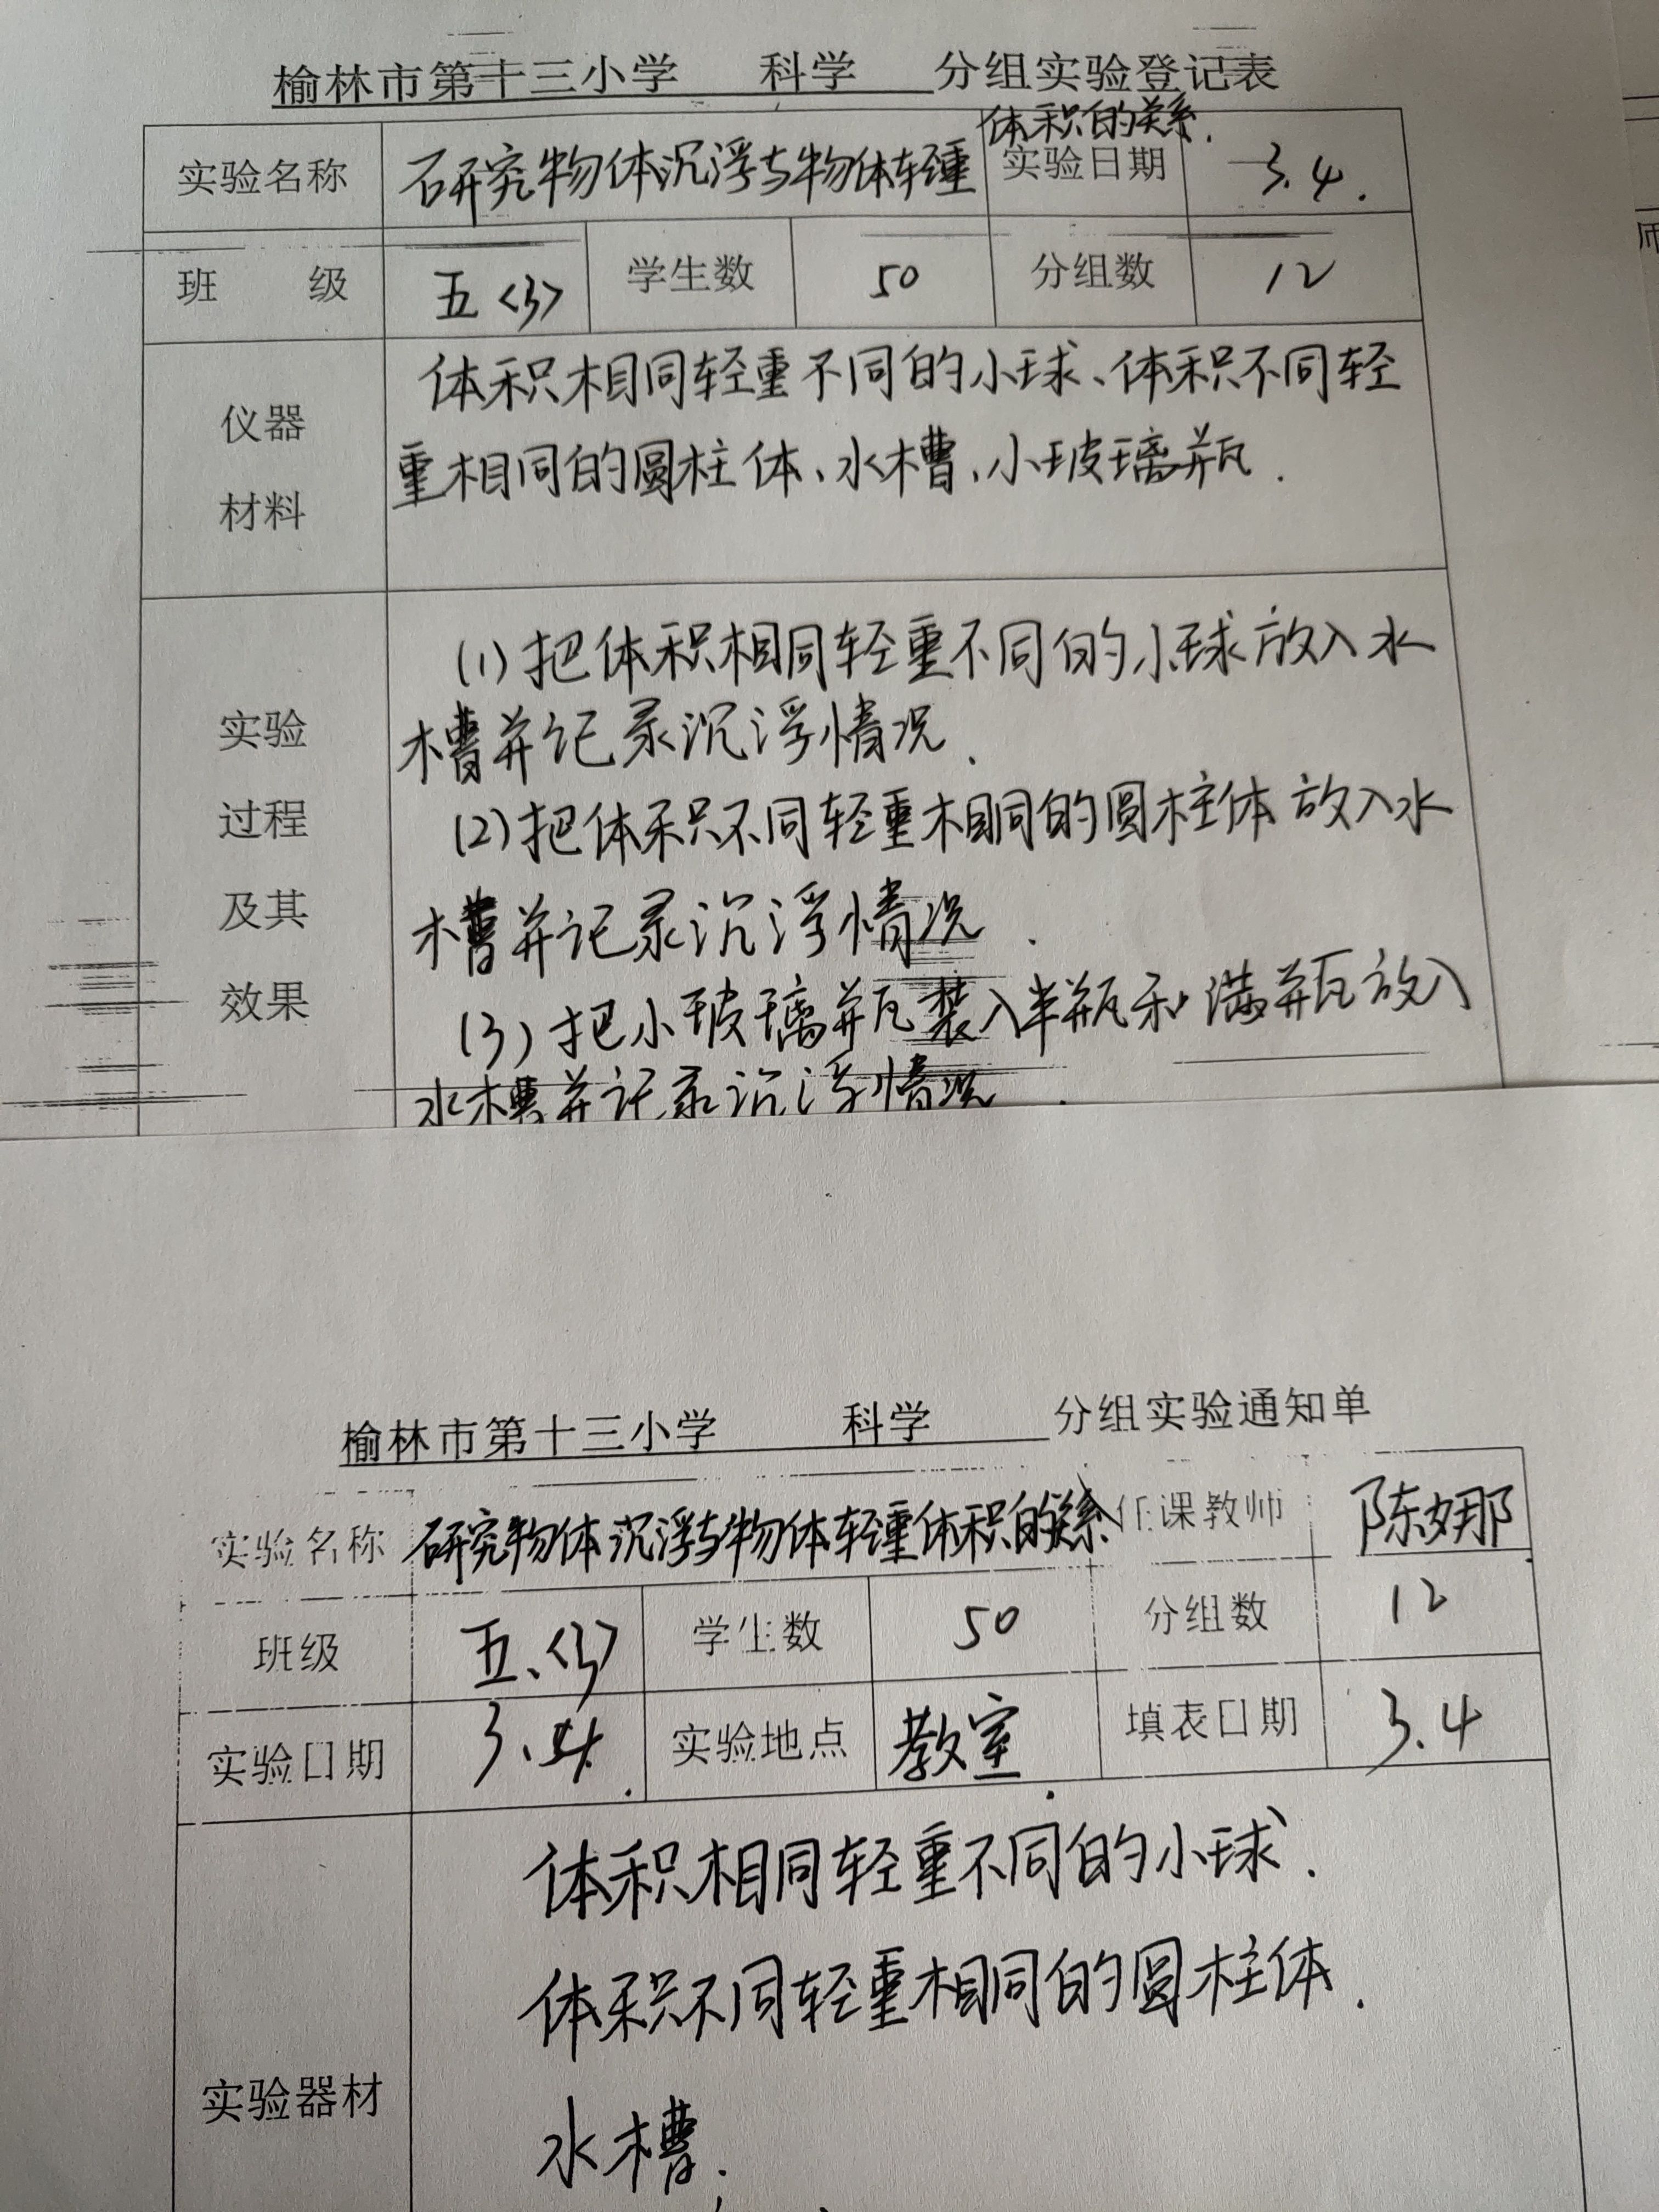 榆林市第十三小学 科学 分组实验登记表
体积的关系.
实验名称 研究物体沉浮与物体轻重 实验日期 3.4.
班 级 五<3> 学生数 50 分组数 12
仪器
材料
体积相同轻重不同的小球、体积不同轻
重相同的圆柱体、水槽、小玻璃瓶.
实验
过程
及其
效果
(1)把体积相同轻重不同的小球放入水
槽并记录沉浮情况.
(2)把体积不同轻重相同的圆柱体放入水
槽并记录沉浮情况.
(3)把小玻璃瓶装入半瓶和满瓶放入
水槽并记录沉浮情况.
师
榆林市第十三小学 科学 分组实验通知单
实验名称 研究物体沉浮与物体轻重体积的关系 任课教师 陈娜
班级 五、<3> 学生数 50 分组数 12
实验日期 3.4. 实验地点 教室. 填表日期 3.4
实验器材
体积相同轻重不同的小球.
体积不同轻重相同的圆柱体.
水槽.